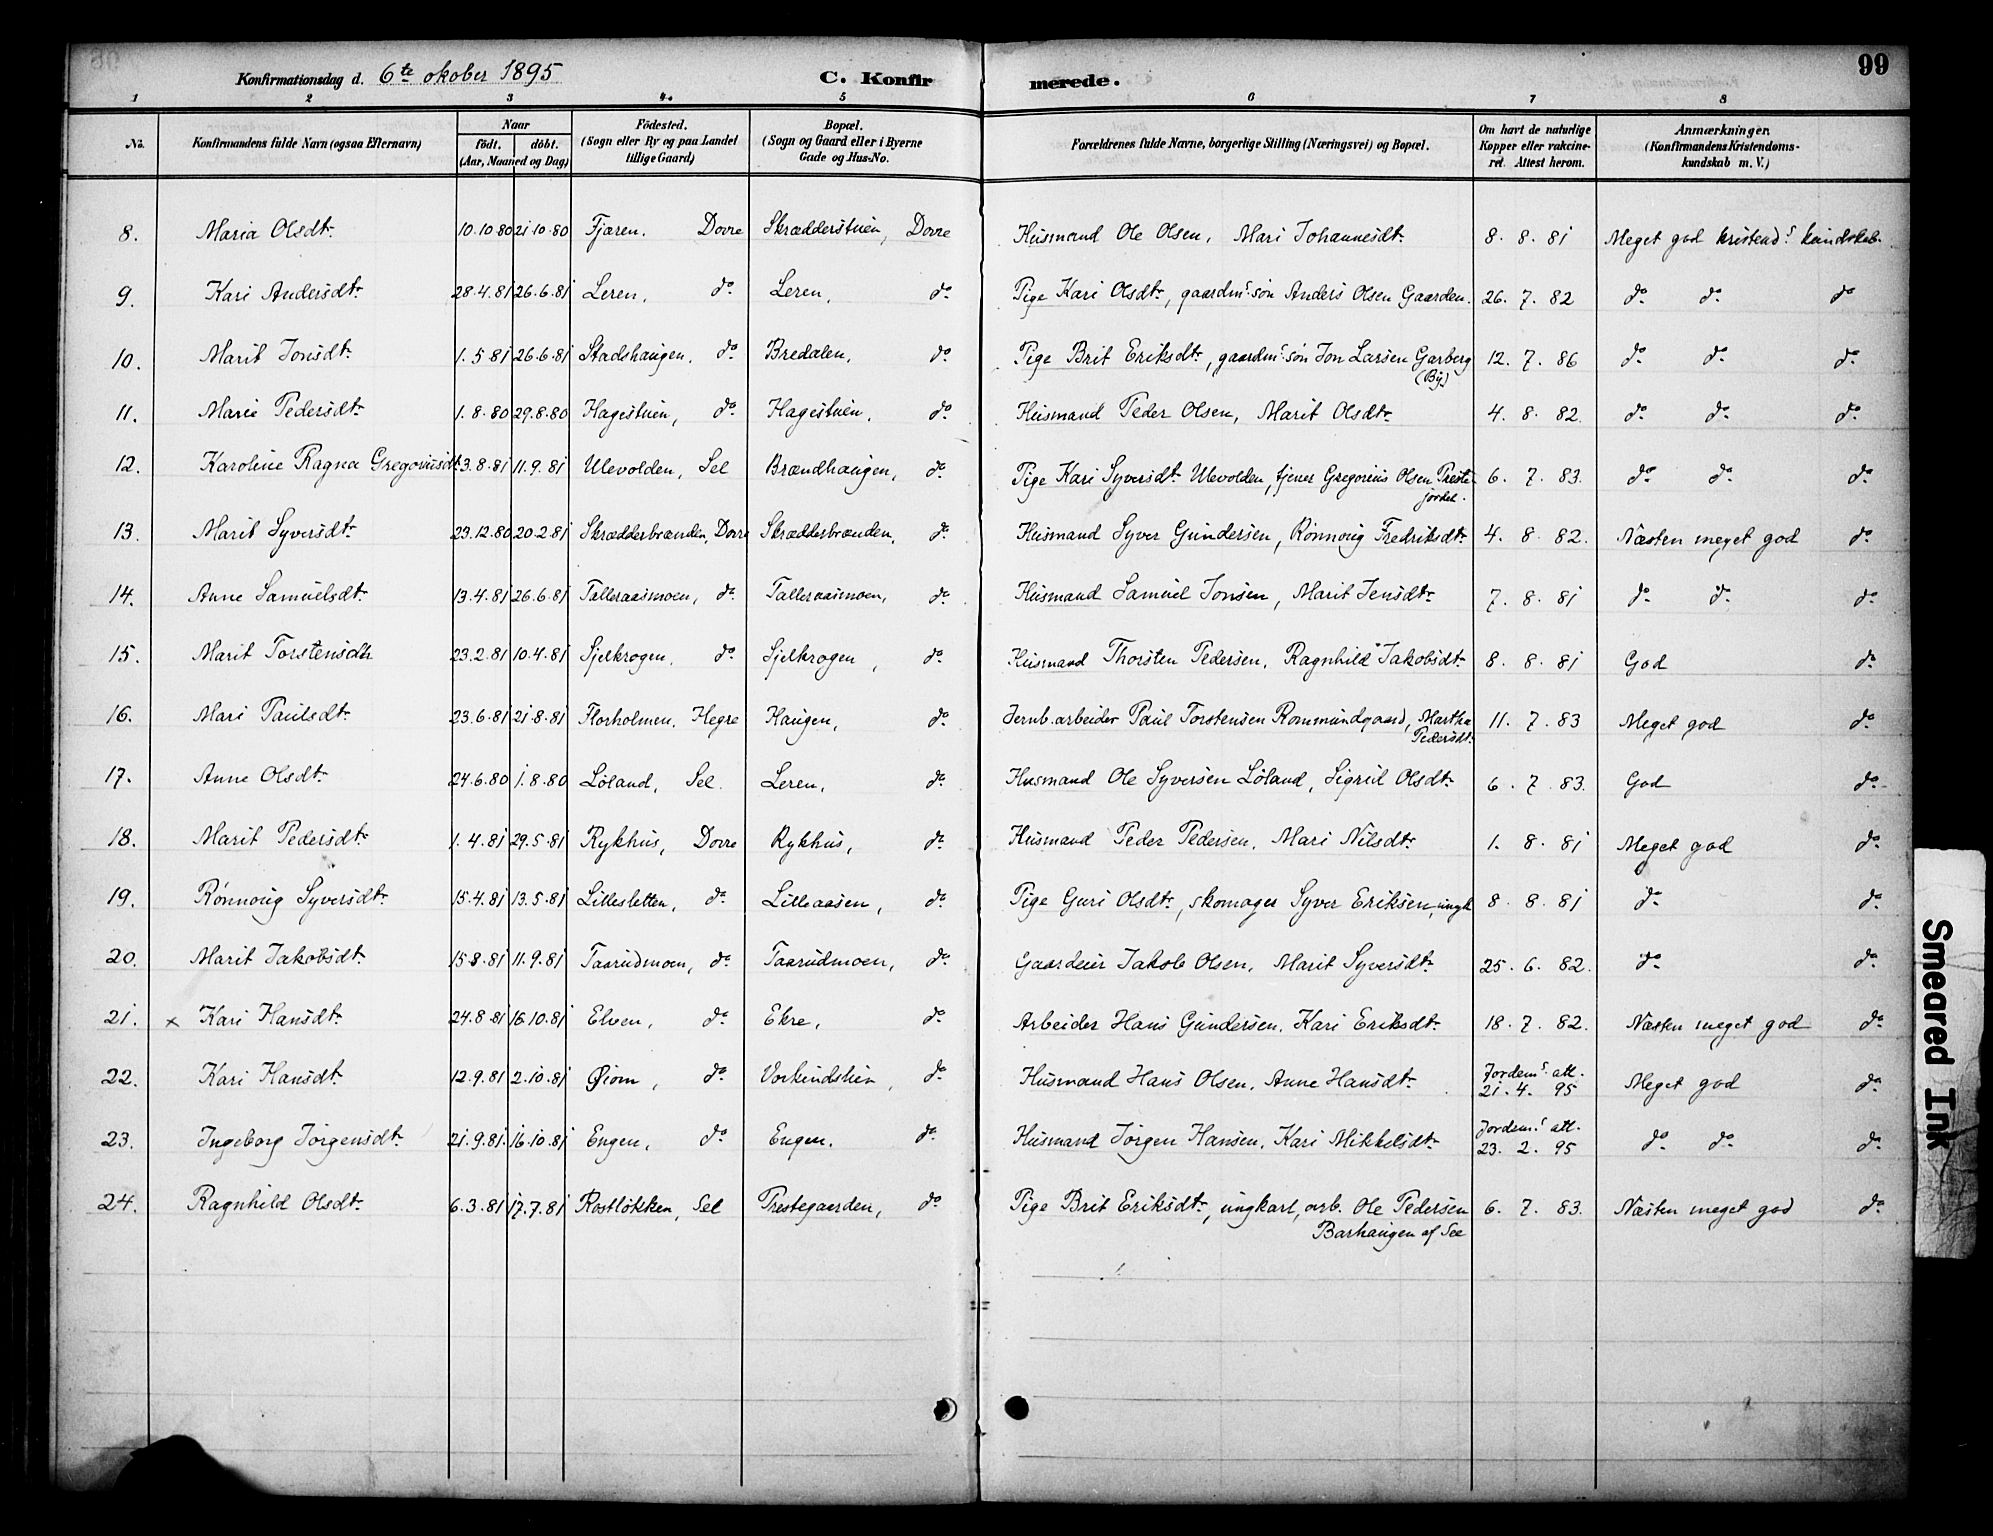 Konfirmationsdag d. 6te okober 1895 C. Konfir merede. 99
1 2 3 4. 5 6 7 8
No. Konfirmandens fulde Navn (ogsaa Efternavn) Naar födt. döbt. (Aar, Maaned og Dag) Födested. (Sogn eller By og paa Landet tillige Gaard) Bopæl. (Sogn og Gaard eller i Byerne Gade og Hus-No. Forældrenes fulde Navne, borgerlige Stilling (Næringsvei) og Bopæl. Om havt de naturlige Kopper eller vakcineret. Attest herom. Anmærkninger. (Konfirmandens Kristendomskundskab m. V.)
8. Maria Olsdtr. 10.10.80 21.10.80 Fjæren. Dovre Skrædderstuen, Dovre Husmand Ole Olsen, Mari Johannesdtr. 8. 8. 81 Meget god kristends kundskab.
9. Kari Andersdtr. 28.4.81 26.6.81 Leren, do. Leren, do. Pige Kari Olsdtr, gaardms. søn Anders Olsen Gaarden. 26. 7. 82 do do do
10. Marit Jonsdtr. 1.5.81 26.6.81 Stadshaugen. do. Bredalen, do. Pige Brit Eriksdtr, gaardms. søn Jon Larsen Garberg 12. 7. 86 do. do. do.
(By)
11. Marie Pedersdtr. 1.8.80 29.8.80 Hagestuen, do. Hagestuen. do. Husmand Peder Olsen, Marit Olsdtr. 4. 8. 82. do. do. do.
12. Karoline Ragna Gregoriusdtr. 3.8.81 11.9.81 Ulevolden, Sel Brændhaugen, do. Pige Kari Syversdtr. Ulevolden, tjener Gregorius Olsen Preste- 6. 7. 83. do do do
jordet.
13. Marit Syversdtr. 23.12.80 20.2.81 Skrædderbrænden, Dovre Skrædderbrænden, do. Husmand Syver Gundersen, Rønnoug Fredriksdtr. 4. 8. 82. Næsten meget god do.
14. Anne Samuelsdtr. 13.4.81 26.6.81 Talleraasmoen, do. Talleraasmoen, do. Husmand Samuel Jonsen, Marit Jensdtr. 7. 8. 81 do. do. do.
15. Marit Torstensdtr 23.2.81 10.4.81 Sjelkrogen, do. Sjelkrogen, do. Husmand Thorsten Pedersen, Ragnhild Jakobsdtr. 8. 8. 81 God do.
16. Mari Paulsdtr. 23.6.81 21.8.81 Florholmen, Hegre Haugen, do. Jernb.arbeider Paul Torstensen Rommundgaard, Martha 11. 7. 83 Meget god do.
Pedersdtr.
17. Anne Olsdtr. 24.6.80 1.8.80 Løland, Sel. Leren, do. Husmand Ole Syversen Løland, Sigrid Olsdtr. 6. 7. 83. God do.
18. Marit Pedersdtr. 1.4.81 29.5.81 Rykhus, Dovre Rykhus, do. Husmand Peder Pedersen, Mari Nilsdtr. 1. 8. 81 Meget god do.
19. Rønnoug Syversdtr. 15.4.81 13.5.81 Lillesletten, do. Lilleaasen, do. Pige Guri Olsdtr., skomager Syver Eriksen, ungk 8. 8. 81 do. do.
20. Marit Jakobsdtr. 15.8.81 11.9.81 Taarudmoen, do. Taarudmoen, do. Gaardeier Jakob Olsen, Marit Syversdtr. 25. 6. 82. do. do.
21. x Kari Hansdtr. 24.8.81 16.10.81 Elven, do. Ekre, do. Arbeider Hans Gundersen, Kari Eriksdtr. 18. 7. 82. Næsten meget god do.
22. Kari Hansdtr. 12.9.81 2.10.81 Øiom, do. Vorkindslien, do. Husmand Hans Olsen, Anne Hansdtr. Jordems. att. 21. 4. 95 Meget god do.
23. Ingeborg Jørgensdtr. 21.9.81. 16.10.81 Engen, do. Engen. do. Husmand Jørgen Hansen, Kari Mikkelsdtr. Jordems. att. 23. 2. 95 do do. do.
24. Ragnhild Olsdtr. 6.3.81 17.7.81 Rostløkken, Sel Prestegaarden, do Pige Brit Eriksdtr., ungkarl, arb. Ole Pedersen 6. 7. 83. Næsten meget god do.
Barhaugen af Sel
Smeared Ink